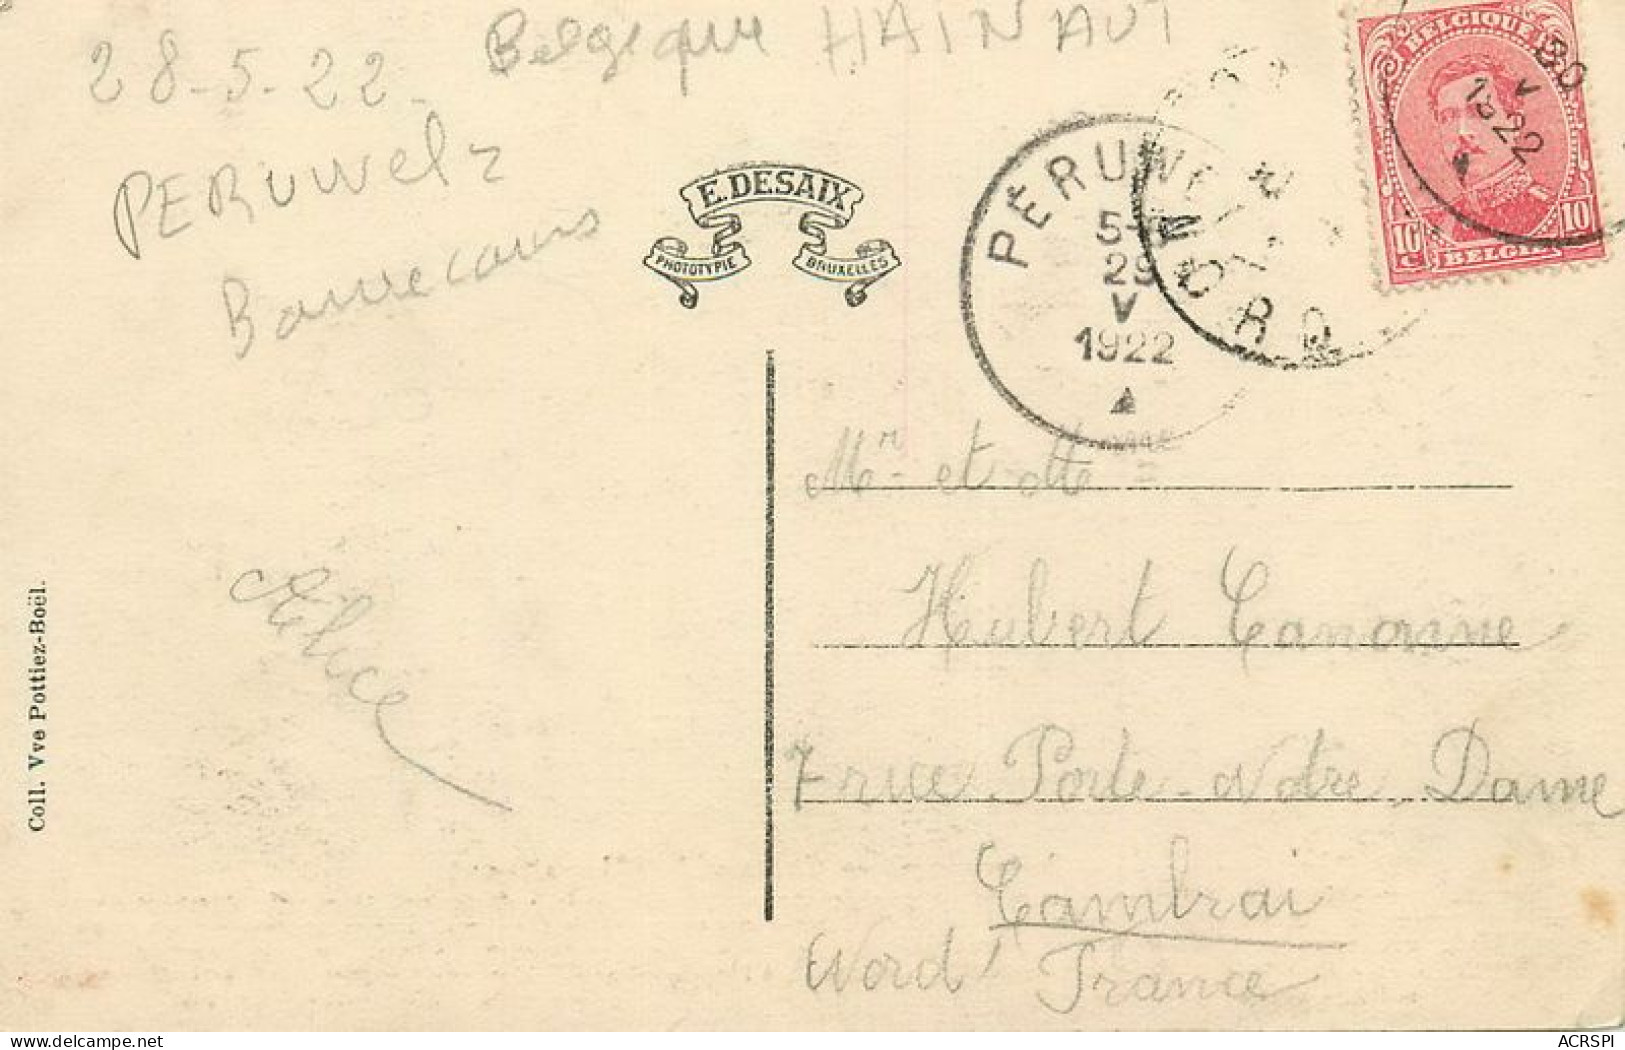 Belgique HAINAUT
28-5-22
PERUWELZ
E. DESAIX
PHOTOTYPIE BRUXELLES
PÉRUWELZ
5-
29
V
1922
BELGIQUE
10 10
BELGIË
30
V
1922
Alice
Coll. Vve Pottiez-Boël.
Mr et Me
Hubert Canonne
7 rue Porte-Notre Dame
Cambrai
Nord France
delcampe.net
ACRSPI